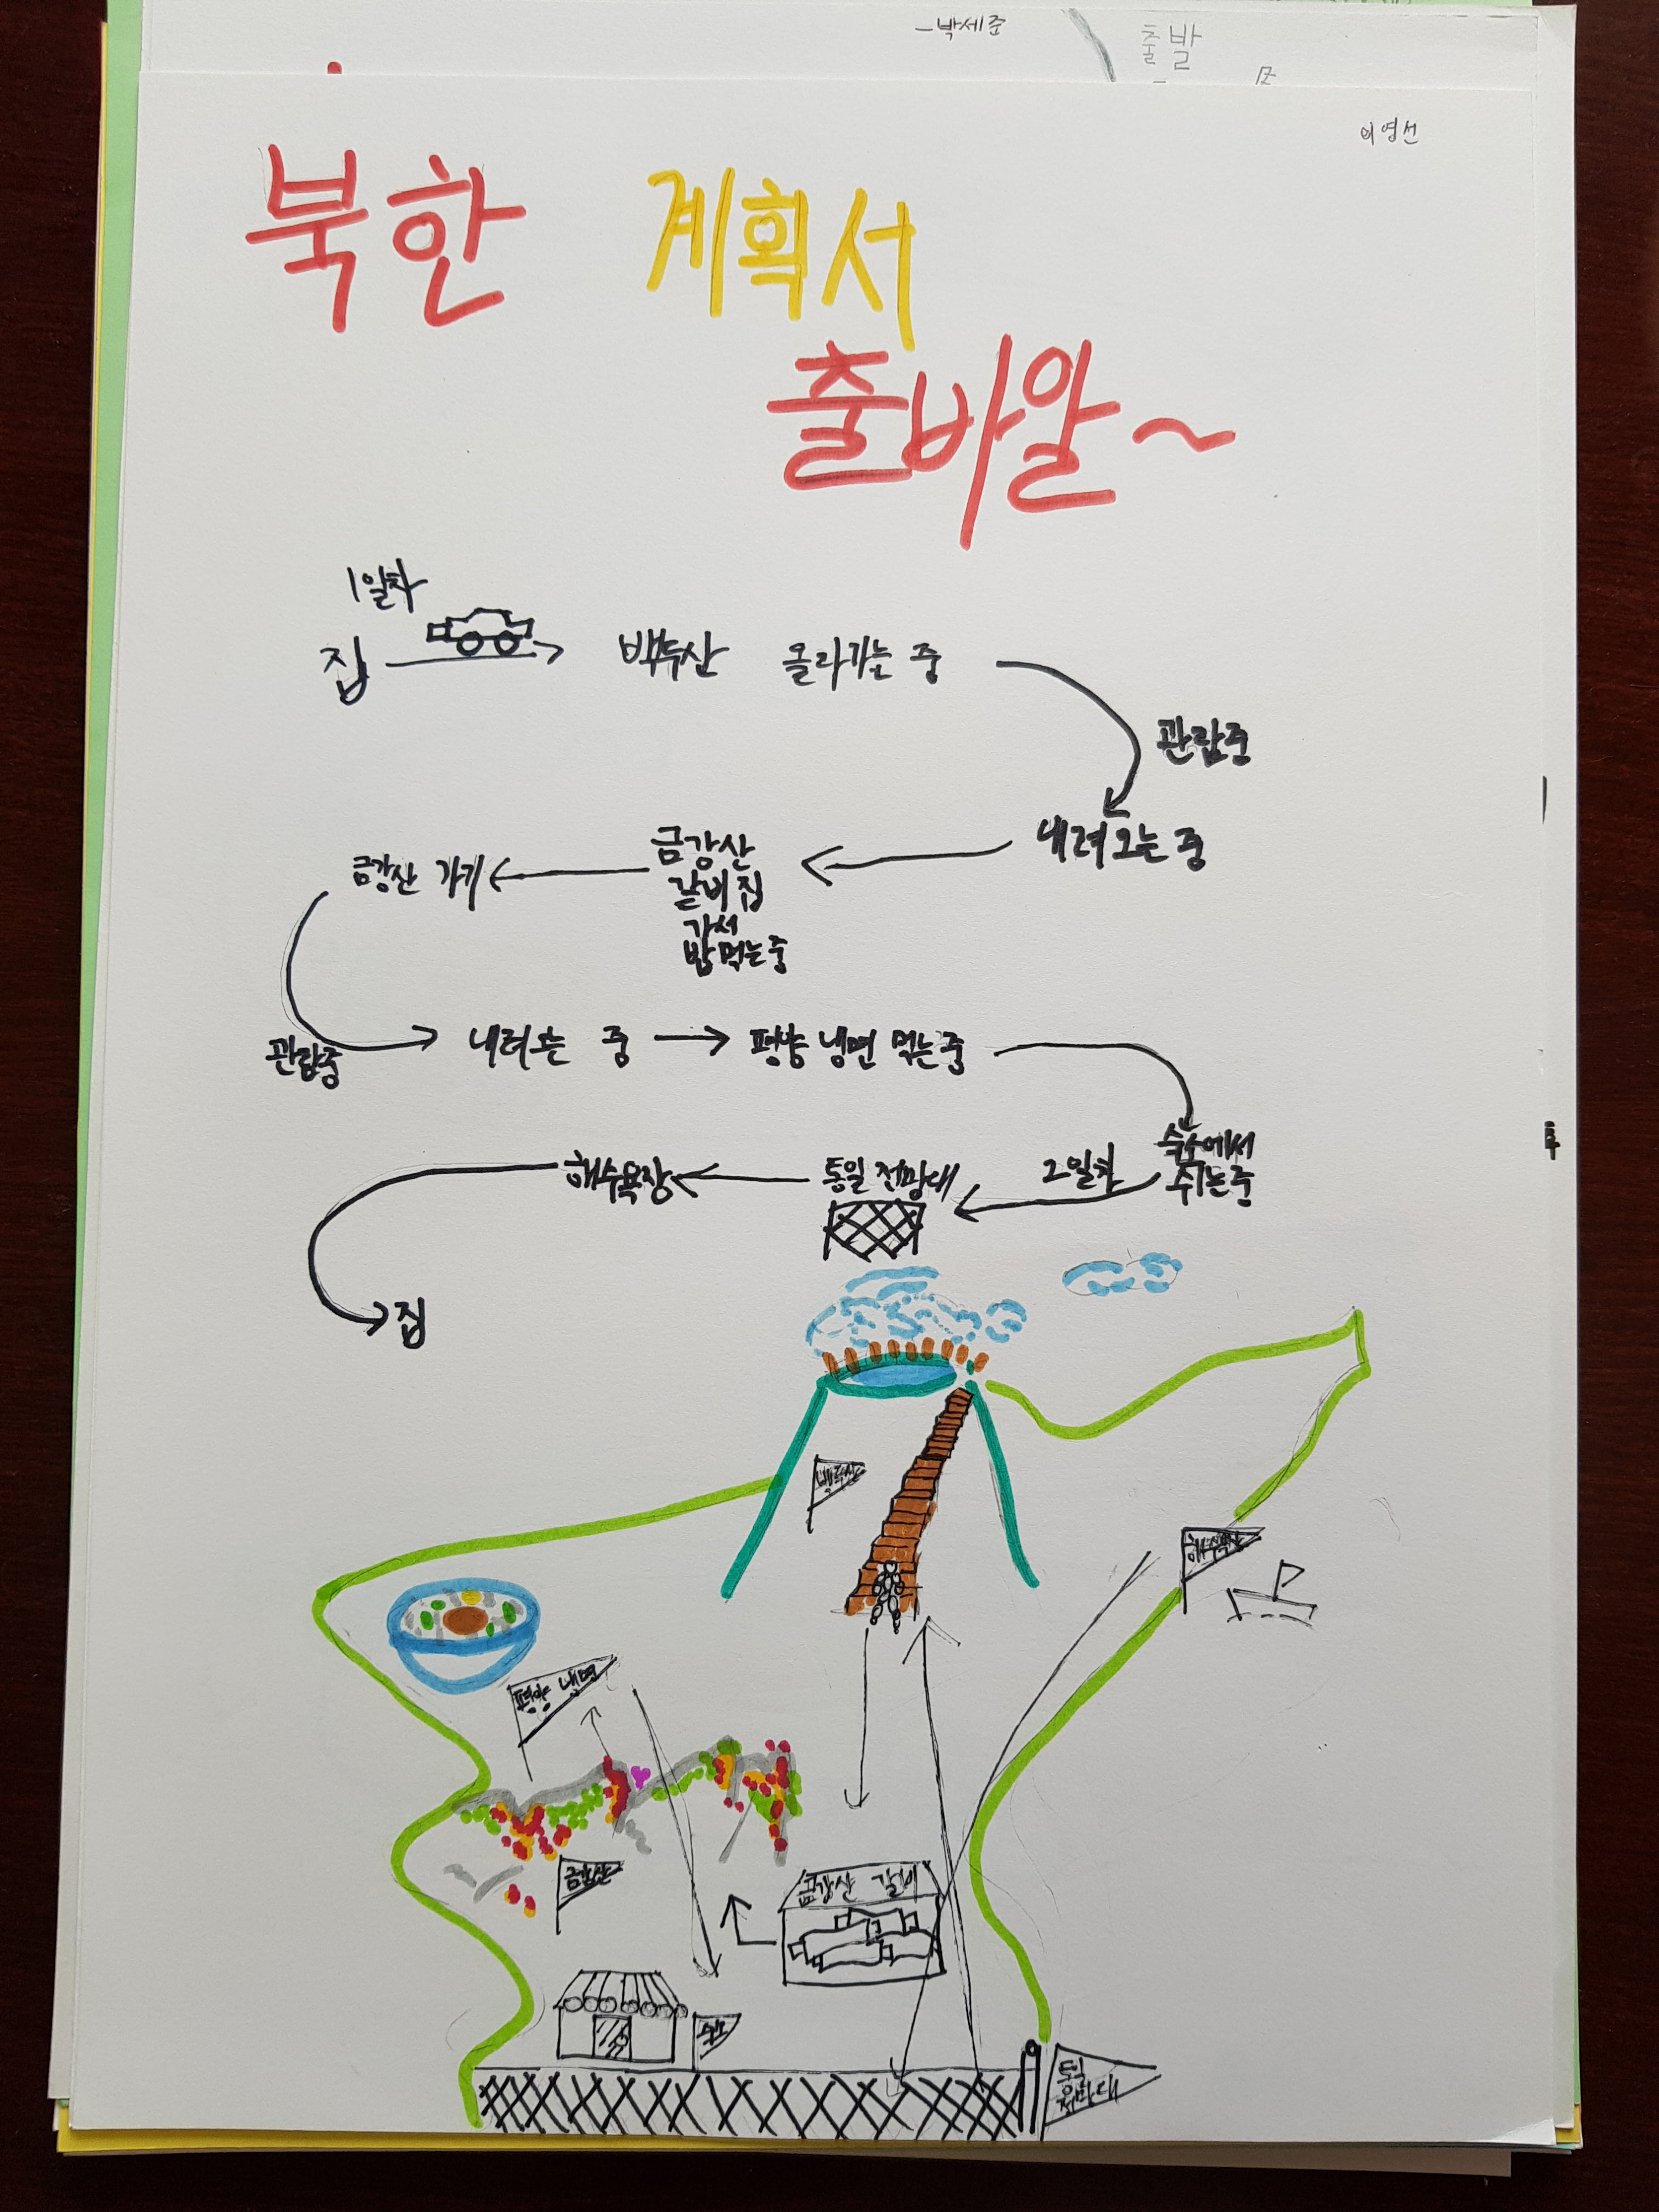 -박세준
출발
이영선
북한 계획서
출바알~
1일차
집 백두산 올라가는 중
관람중
내려오는 중
금강산
갈비집
가서
밥먹는중
금강산 가기
관람중
내려오는 중
평양 냉면 먹는중
숙소에서
쉬는중
2일차
통일 전망대
해수욕장
집
백두산
해수욕장
평양 냉면
금강산
금강산 갈비
숙소
통일
전망대